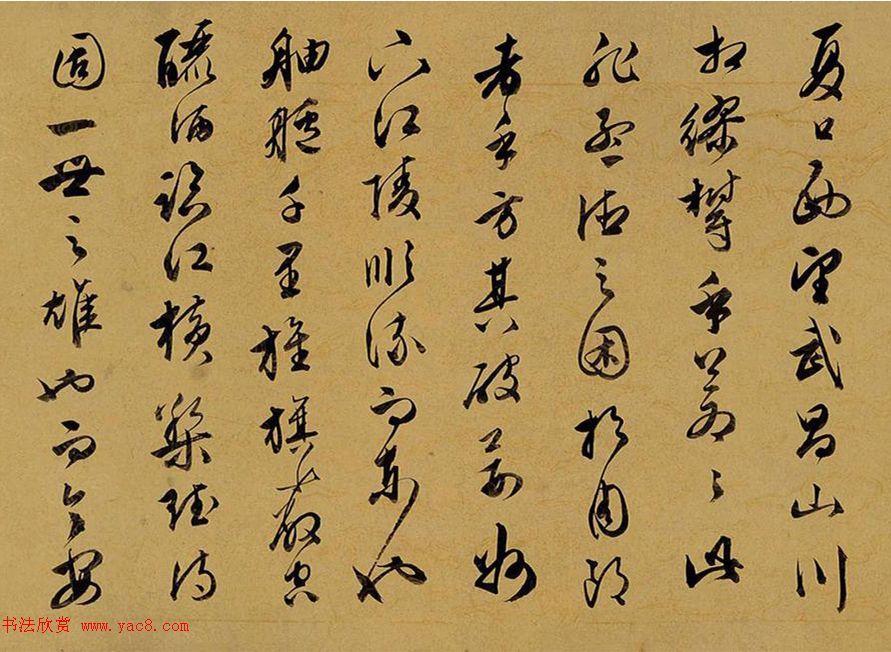 夏口西望武昌山川
相繆鬱乎蒼々此
非孟德之困於周郎
者乎方其破荊州
下江陵順流而東也
舳艫千里旌旗蔽空
釃酒臨江橫槊賦詩
固一世之雄也而今安
书法欣赏 www.yac8.com